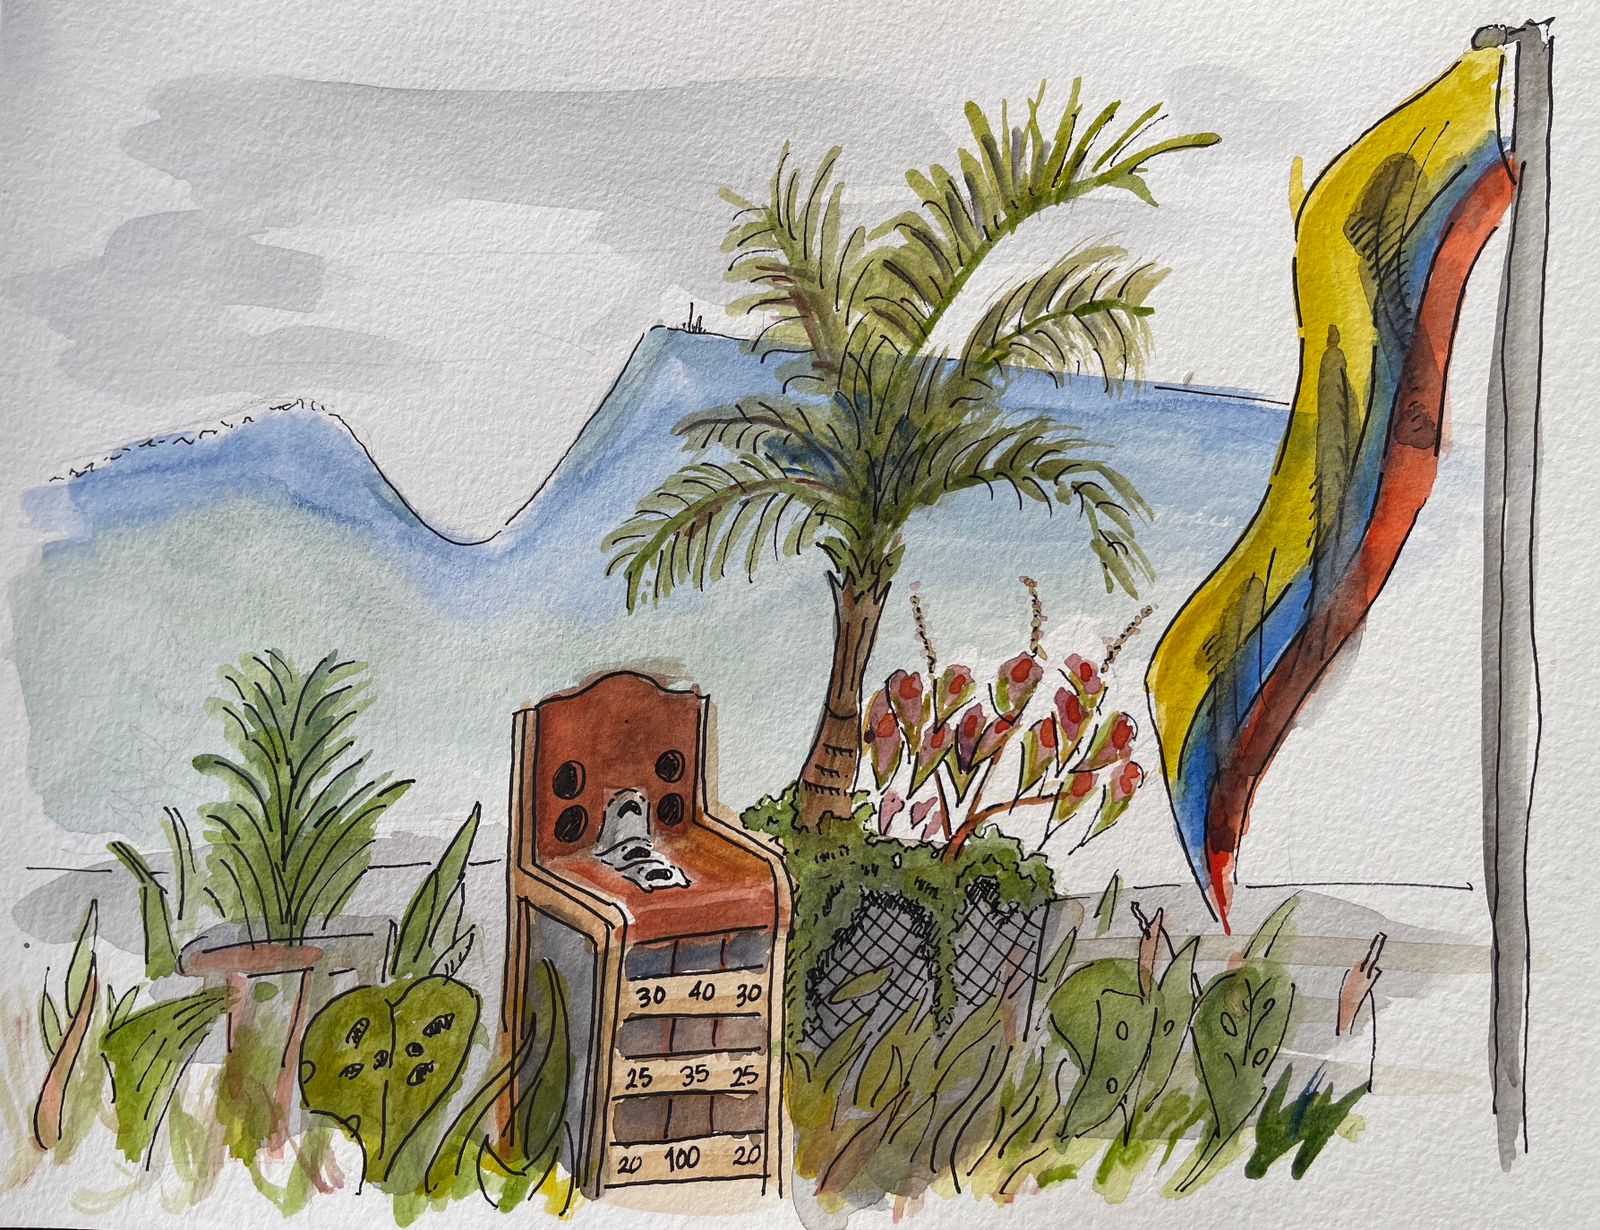 30 40 30
25 35 25
20 100 20